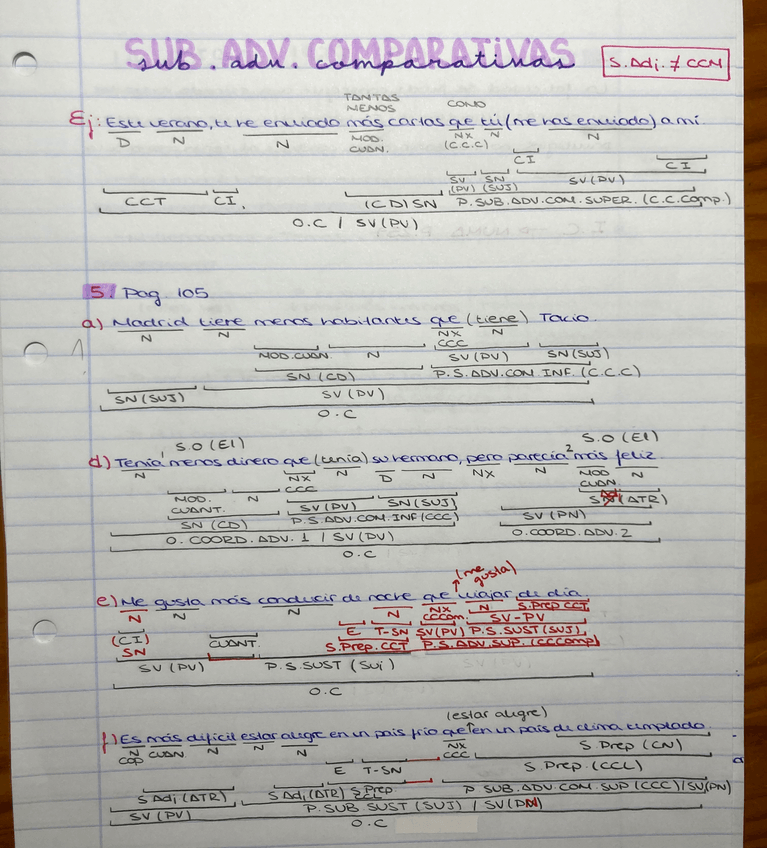 SUB. ADV. COMPARATIVAS
sub. adv. comparativas
S.Adj. ≠ CCN
TANTAS
MENOS COMO
Ej: Este verano, te he enviado más cartas que tú (me has enviado) a mí.
D N N MOD. NX N N
CUAN. (C.C.C)
CI CI
SV SN SV(PV)
(PV) (SUJ)
CCT CI. (CD) SN P.SUB.ADV.COM.SUPER. (C.C.Comp.)
O.C / SV(PV)
5. Pag. 105
a) Madrid tiene menos habitantes que (tiene) Tokio.
N N NX N
CCC
MOD.CUAN. N SV(PV) SN(SUJ)
SN (CD) P.S.ADV.COM.INF. (C.C.C)
SN(SUJ) SV(PV)
O.C
S.O (El) S.O (El)
d) Tenía¹ menos dinero que (tenía) su hermano, pero parecía² más feliz.
N NX N D N NX N MOD N
CCC CUAN
MOD. N SV(PV) SN(SUJ) (ATR)
CUANT.
SN (CD) P.S.ADV.COM.INF(CCC) SV(PN)
O.COORD.ADV.1 / SV(PV) O.COORD.ADV.2
O.C
(me
gusta)
e) Me gusta más conducir de noche que viajar de día.
N N N N NX N S.Prep CCT
CCCom. SV-PV
(CI) CUANT. E T-SN SV(PV) P.S.SUST (SUJ),
SN S.Prep.CCT P.S.ADV.SUP.(CCComp)
SV (PV) P.S.SUST (SUJ)
O.C
(estar alegre)
f) Es más difícil estar alegre en un país frío que en un país de clima templado.
N CUAN N N N NX S.Prep (CN)
COP CCC
E T-SN S.Prep. (CCL)
S Adj (ATR) S Adj (ATR) S Prep P SUB.ADV.COM.SUP (CCC)/SV(PN)
CCL
SV (PV) P.SUB SUST (SUJ) / SV(PN)
O.C